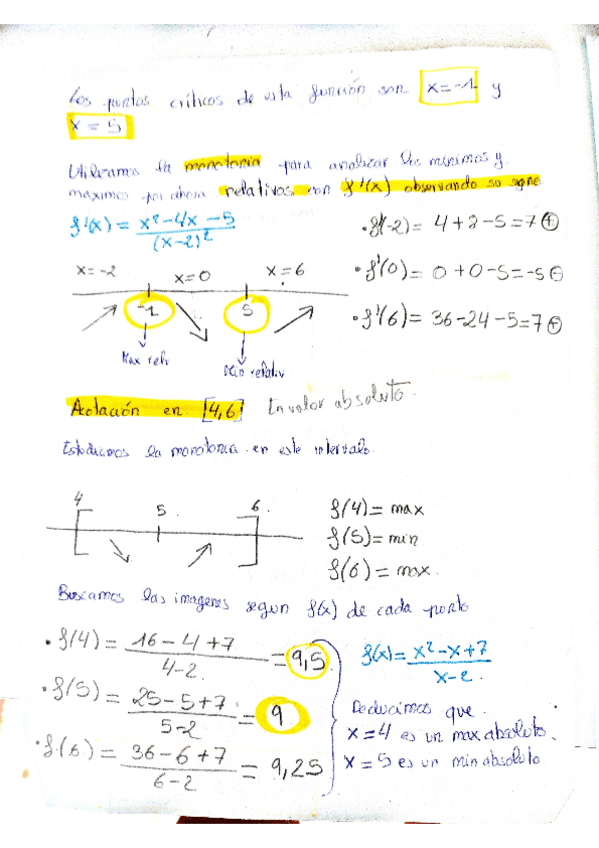 Los puntos críticos de esta función son x=-1 y
x = 5
Utilizamos la monotonía para analizar los mínimos y
maximos por ahora relativos con f'(x) observando su signo
f'(x) = x²-4x-5 / (x-2)²
·f'(-2) = 4+2-5=7 ⊕
x=-2 x=0 x=6
·f'(0) = 0+0-5=-5 ⊖
-1 5
·f'(6) = 36-24-5=7 ⊕
Max relv Min relativ
Actuación en [4,6] En valor absoluto.
Estudiamos la monotonia en este intervalo.
4 5 6
f(4)= max
f(5)= min
f(6)= max.
Buscamos las imagenes segun f(x) de cada punto
·f(4) = 16-4+7 / 4-2 = 9,5
f(x)= x²-x+7 / x-2
·f(5) = 25-5+7 / 5-2 = 9
Deducimos que
x=4 es un max absoluto.
·f(6) = 36-6+7 / 6-2 = 9,25
x=5 es un min absoluto